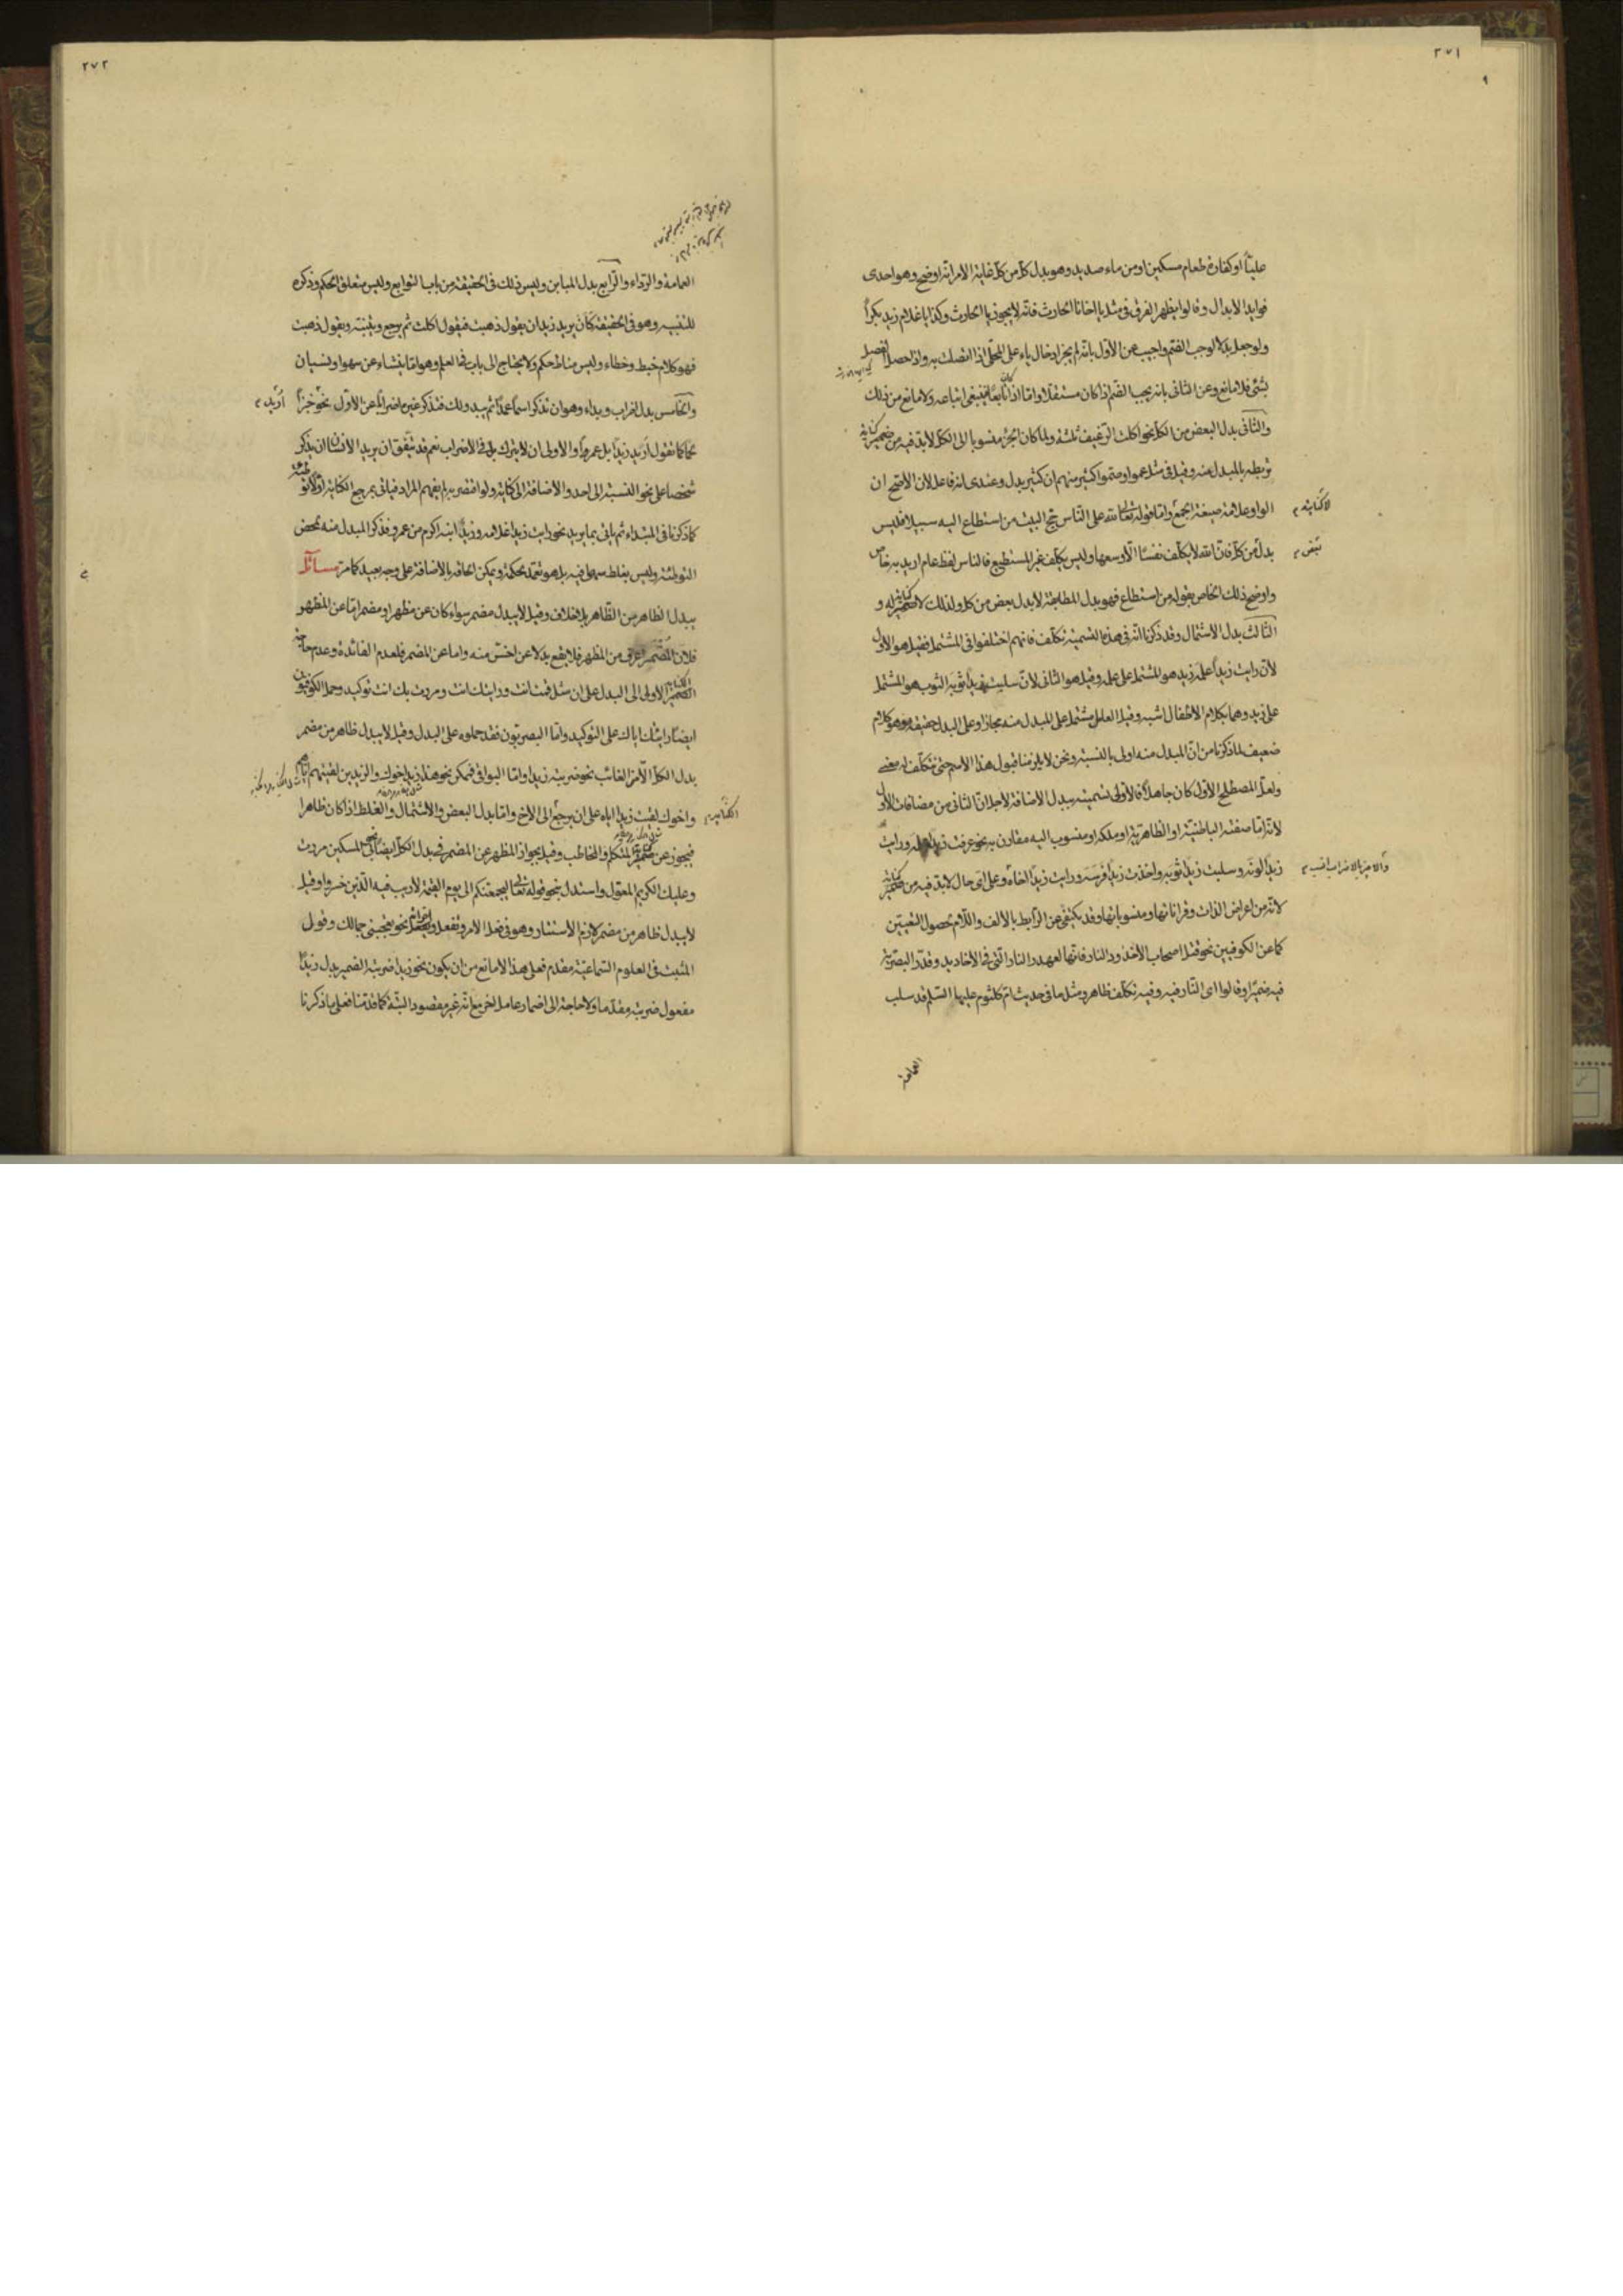 ٢٧١
٩
علياً او كفارة طعام مسكين او من ماء صديد وهو بدل كل من كل غاية الامر انه اوضح وهو احدى
فوايد الابدال وقالوا يظهر الفرق في مثل يا اخانا الحارث فانه لا يجوز يا الحارث وكذا يا غلام زيد بكراً
ولو جعل بدلا لوجب الضم واجيب عن الاول بانه لم يجز ادخال ياء على المحلى اذا اتصلت به واذا حصل الفصل
بشئ فلا مانع وعن الثاني بانه يجب الضم اذا كان مستقلا واما اذا كان تابعاً فينبغي اتباعه ولا مانع من ذلك
والثاني بدل البعض من الكل نحو اكلت الرغيف ثلثه ولما كان الجزء منسوبا الى الكل لابد فيه من ضمير
تربطه بالمبدل منه وقيل في مثل عموا وصموا كثير منهم ان كثير بدل وعندى انه فاعل لان الاصح ان
الواو علامة صيغة الجمع واما قوله تعالى لله على الناس حج البيت من استطاع اليه سبيلا فليس
بدل من كل فان الله لا يكلف نفسًا الا وسعها وليس يكلف غير المستطيع فالناس لفظ عام اريد به خاص
واوضح ذلك الخاص بقوله من استطاع فهو بدل المطابقة لا بدل بعض من كل ولذلك لا ضمير له و
الثالث بدل الاشتمال وقد ذكرنا انه في هذه التسمية تكلف فانهم اختلفوا في المشتمل فقيل هو الاول
لان رايت زيداً علمه زيد هو المشتمل على علمه وقيل هو الثاني لان سلبت زيداً ثوبه الثوب هو المشتمل
على زيد وهما بكلام الاطفال اشبه وقيل العامل مشتمل على المبدل منه مجازا وعلى البدل حقيقة وهو كلام
ضعيف لما ذكرنا من ان المبدل منه اولى بالنسبة ونحن لا يلزمنا قبول هذا الاسم حتى نتكلف له معنى
ولعل المصطلح الاول كان جاهلاً فالاولى تسميته ببدل الاضافة لاجل ان الثاني من مضافات الاول
لانه اما صفته الباطنية او الظاهرية او ملكه او منسوب اليه مقارن به نحو عرفت زيداً علمه ورايت
زيداً لونه وسلبت زيداً ثوبه واخذت زيداً فرسه ورايت زيداً اخاه وعلى اى حال لابد فيه من ضمير
لانه من اعراض الذات وقراناتها ومنسوباتها وقد يكتفى عن الرابط بالالف واللام لحصول التعيين
كما عن الكوفيين نحو قتل اصحاب الاخدود النار فانها لعهد النار التي في الاخاديد وقدر البصرية
فيه ضميرا وقالوا اى النار فيه وفيه تكلف ظاهر ومثل ما في حديث ام كلثوم عليها السلام قد سلب
العمامة
لا كناية
تبعض
والاخير بالاضراب انسب
٢٧٢
العمامة والرداء والرابع بدل المباين وليس ذلك في الحقيقة من باب التوابع وليس متعلق الحكم وذكره
للتنبيه وهو في الحقيقة كان يريد زيد ان يقول ذهبت فيقول اكلت ثم يرجع ويثبته ويقول ذهبت
فهو كلام خبط وخطاء وليس مناط حكم ولا يحتاج الى باب في العلم وهو اما ينشاء عن سهو او نسيان
والخامس بدل اضراب وبداء وهو ان تذكر اسماً عمداً ثم يبدو لك فتذكر غيره اضراباً عن الاول نحو خبزاً
لحماً كما تقول اريد زيداً بل عمرواً والاولى ان لا يترك بل في الاضراب نعم قد يتفق ان يريد الانسان ان يذكر
شخصا على نحو النسبة الى احد والاضافة الى كناية ولو اقتصر به لم يفهم المراد فياتي بمرجع الكناية اولا توطئة
كما ذكرنا في المبتداء ثم ياتي بما يريد نحو رايت زيداً غلامه وزيداً ابنه اكرم من عمرو فذكر المبدل منه لمحض
التوطئة وليس بغلط سهى فيه بل هو تعمد لحكمة ويمكن الحاقه بالاضافة على وجه بعيد كما مر مسائل
يبدل الظاهر من الظاهر بلا خلاف وقيل لا يبدل مضمر سواء كان عن مظهر او مضمر اما عن المظهر
فلان المضمر اعرف من المظهر فلا يقع بدلا عن اخس منه واما عن المضمر فلعدم الفائدة وعدم حاجة
الضمير الاولى الى البدل على ان مثل قمت انت ورايتك انت ومررت بك انت توكيد وحمل الكوفيون
ايضا رايتك اياك على التوكيد واما البصريون فقد حملوه على البدل وقيل لا يبدل ظاهر من مضمر
بدل الكل الا من الغائب نحو ضربته زيداً واما البواقي فممكن نحو هند زيد اخوك والزيدين لقيتهم اياهم
واخوك لقيت زيداً اياه على ان يرجع الى الاخ واما بدل البعض والاشتمال والغلط اذا كان ظاهرا
فيجوز عن ضمير المتكلم والمخاطب وقيل بجواز المظهر عن المضمر في بدل الكل ايضاً نحو بي المسكين مررت
وعليك الكريم المعول واستدل بنحو قوله تعالى ليجمعنكم الى يوم القيمة لا ريب فيه الذين خسروا وقيل
لا يبدل ظاهر من مضمر لازم الاستتار وهو في فعل الامر وتفعل نحو تعجبني جمالك وقول
المثبت في العلوم السماعية مقدم فعلى هذا لا مانع من ان يكون نحو زيداً ضربته الضمير بدل زيداً
مفعول ضربت مقدما ولا حاجة الى اضمار عامل اخر مع انه غير مقصود البتة كما قدمنا فعلى ما ذكرنا
اريد
الكناية